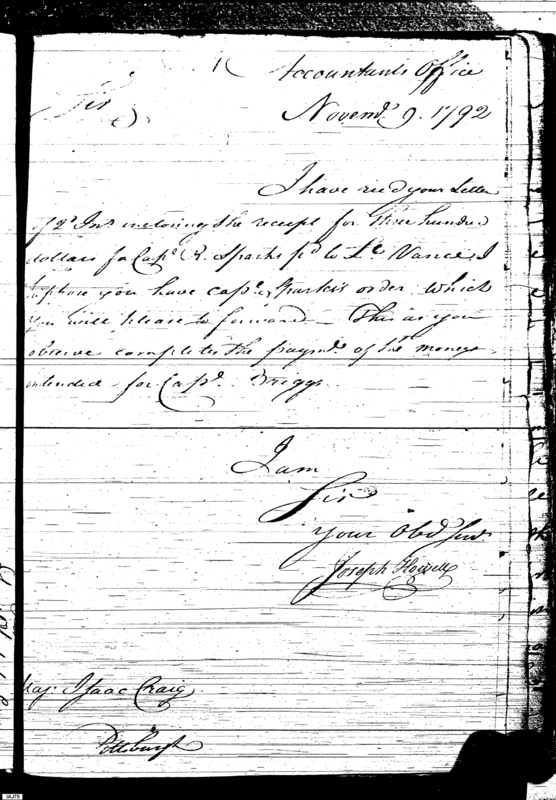 Accountants Office
Sir
Novemr. 9. 1792
I have recd your Letter
of 2d Inst inclosing the receipt for three hundred
dollars for Capt. R. Sparks pd to Lt Vance, I
suppose you have capt. Sparks's order which
you will please to forward – This as you
observe completes the paymt. of the money
intended for Capt. Briggs.
I am
Sir
your Obdt Servt
Joseph Howell
Maj: Isaac Craig
Pittsburgh
IAJ75